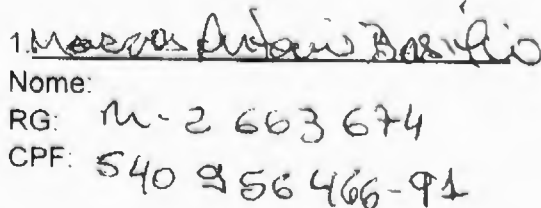 1. Marcos Antonio Basílio
Nome:
RG: M-2 663 674
CPF: 540 956 466-91